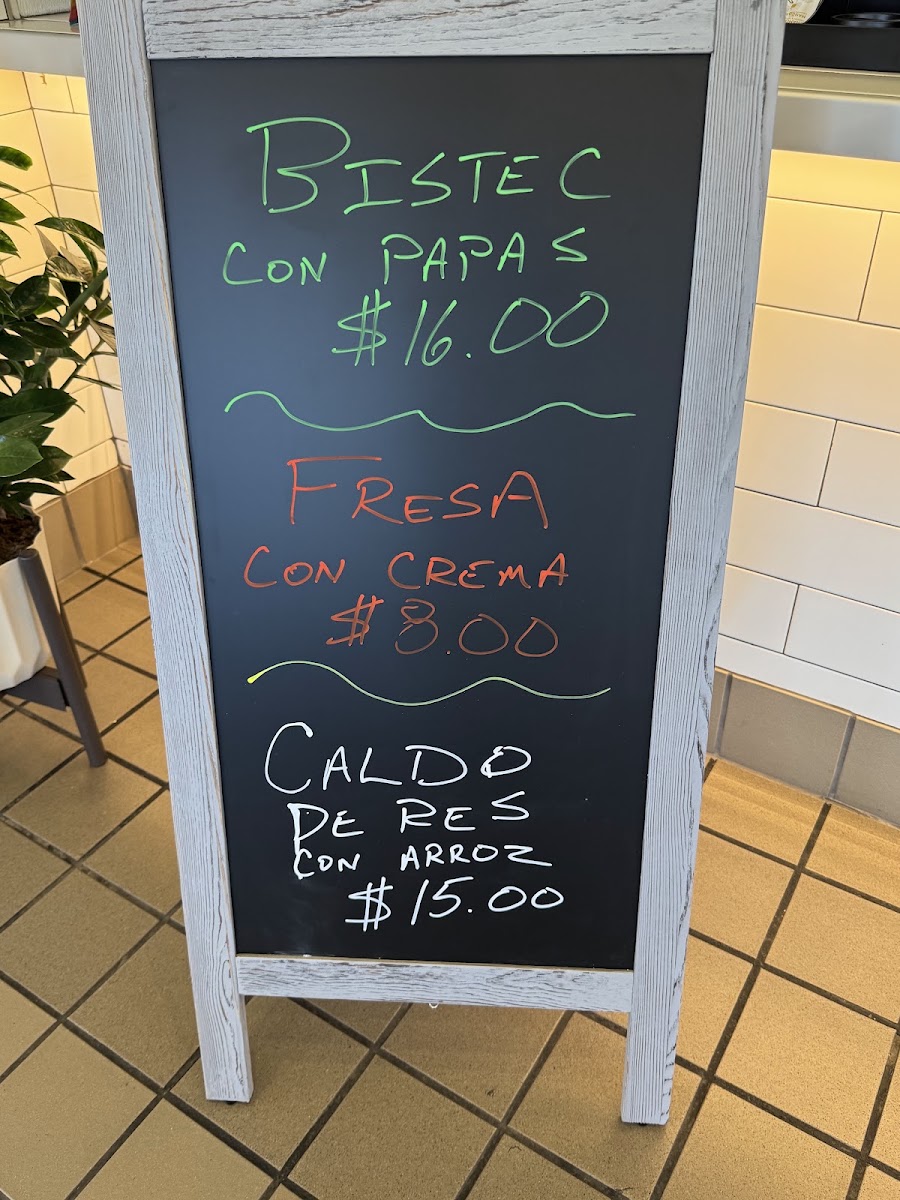 BISTEC
CON PAPAS
$16.00
FRESA
CON CREMA
$8.00
CALDO
DE RES
CON ARROZ
$15.00